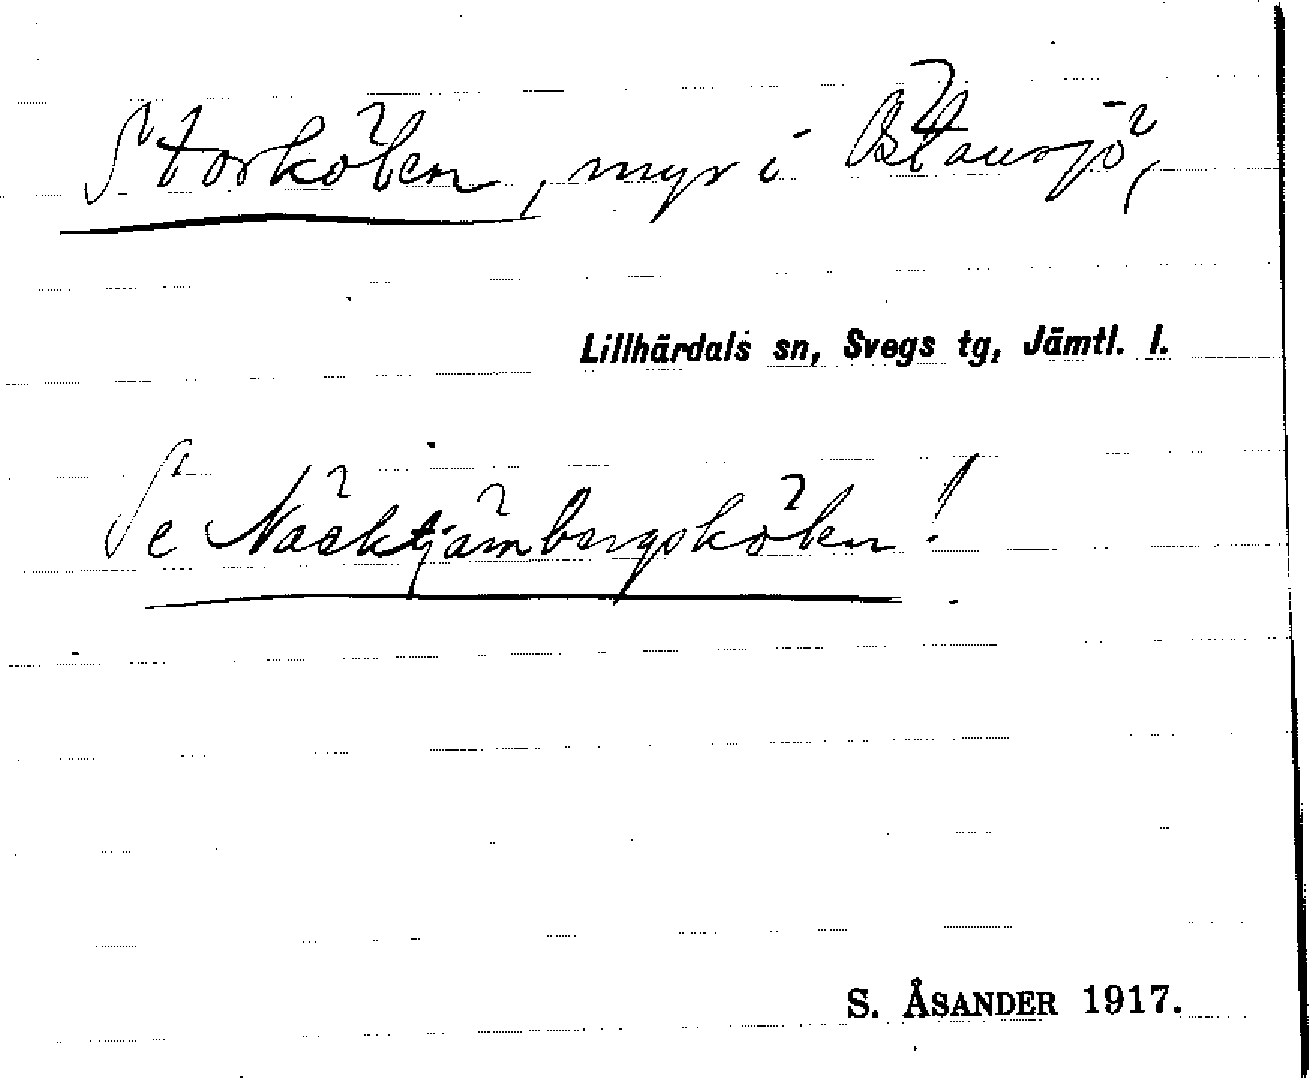 Storkölen, myr i Östansjö,
Lillhärdals sn, Svegs tg, Jämtl. l.
Se Näcktjärnbergskölen!
S. ÅSANDER 1917.